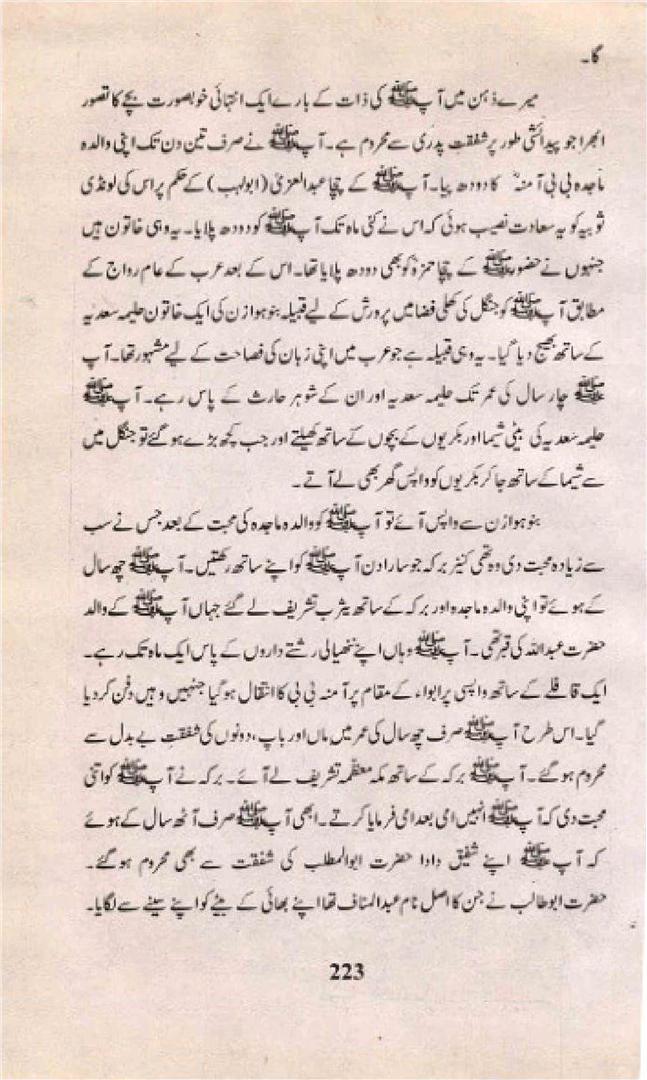 گا۔
میرے ذہن میں آپ ﷺ کی ذات کے بارے ایک انتہائی خوبصورت بچے کا تصور
ابھرا جو پیدائشی طور پر شفقت پدری سے محروم ہے۔ آپ ﷺ نے صرف تین دن تک اپنی والدہ
ماجدہ بی بی آمنہؓ کا دودھ پیا۔ آپ ﷺ کے چچا عبدالعزیٰ (ابولہب) کے حکم پر اس کی لونڈی
ثوبیہ کو یہ سعادت نصیب ہوئی کہ اس نے کئی ماہ تک آپ ﷺ کو دودھ پلایا۔ یہ وہی خاتون ہیں
جنہوں نے حضور ﷺ کے چچا حمزہؓ کو بھی دودھ پلایا تھا۔ اس کے بعد عرب کے عام رواج کے
مطابق آپ ﷺ کو جنگل کی کھلی فضا میں پرورش کے لیے قبیلہ بنو ہوازن کی ایک خاتون حلیمہ سعدیہ
کے ساتھ بھیج دیا گیا۔ یہ وہی قبیلہ ہے جو عرب میں اپنی زبان کی فصاحت کے لیے مشہور تھا۔ آپ
ﷺ چار سال کی عمر تک حلیمہ سعدیہ اور ان کے شوہر حارث کے پاس رہے۔ آپ ﷺ
حلیمہ سعدیہ کی بیٹی شیما اور بکریوں کے بچوں کے ساتھ کھیلتے اور جب کچھ بڑے ہو گئے تو جنگل میں
سے شیما کے ساتھ جا کر بکریوں کو واپس گھر بھی لے آتے۔
بنو ہوازن سے واپس آئے تو آپ ﷺ کو والدہ ماجدہ کی محبت کے بعد جس نے سب
سے زیادہ محبت دی وہ تھی کنیز برکہ جو سارا دن آپ ﷺ کو اپنے ساتھ رکھتیں۔ آپ ﷺ چھ سال
کے ہوئے تو اپنی والدہ ماجدہ اور برکہ کے ساتھ یثرب تشریف لے گئے جہاں آپ ﷺ کے والد
حضرت عبداللہ کی قبر تھی۔ آپ ﷺ وہاں اپنے ننھیالی رشتے داروں کے پاس ایک ماہ تک رہے۔
ایک قافلے کے ساتھ واپسی پر ابواء کے مقام پر آمنہ بی بی کا انتقال ہو گیا جنہیں وہیں دفن کر دیا
گیا۔ اس طرح آپ ﷺ صرف چھ سال کی عمر میں ماں اور باپ، دونوں کی شفقتِ بے بدل سے
محروم ہو گئے۔ آپ ﷺ برکہ کے ساتھ مکہ معظمہ تشریف لے آئے۔ برکہ نے آپ ﷺ کو اتنی
محبت دی کہ آپ ﷺ انہیں امی بعد امی فرمایا کرتے۔ ابھی آپ ﷺ صرف آٹھ سال کے ہوئے
کہ آپ ﷺ اپنے شفیق دادا حضرت ابوالمطلب کی شفقت سے بھی محروم ہو گئے۔
حضرت ابوطالب نے جن کا اصل نام عبدالمناف تھا اپنے بھائی کے بیٹے کو اپنے سینے سے لگایا۔
223